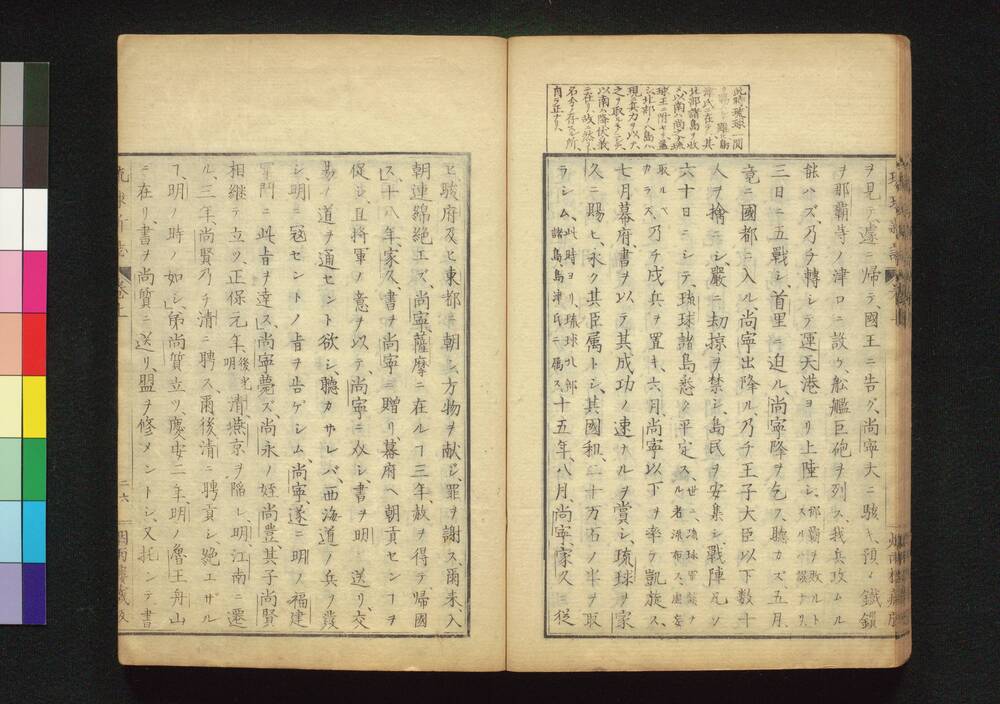 此時琉球一円
島氏ニ在ラズ、其
北部諸島ヲ收
以南ハ尚ホ琉
球王ニ附セリ、蓋
シ北部ノ八島ハ
現ニ兵力ヲ以テ
之ヲ取ル
以南ハ降伏ノ義
ニ在リ、故ニ然リ
名今ノ存スル所、
自ラ正ナリ、
ヲ見テ、遽ニ帰テ國王ニ告グ、尚寧大ニ駭キ、預メ鐵鎖
ヲ那覇寺ノ津口ニ設ケ、舩艦巨砲ヲ列ス、我兵攻ムル
能ハズ、乃チ轉シテ運天港ヨリ上陸シ、
三日ニ五戰シ、首里ニ迫ル、尚寧降ヲ乞フ、聽カズ、五月、
竟ニ國都ニ入ル、尚寧出降ル、乃チ王子大臣以下數十
人ヲ擒ニシ、嚴ニ劫掠ヲ禁シ、島民ヲ安集シ、戰陣凡ソ
六十日ニシテ、琉球諸島悉ク平定ス、世ニ、琉球軍談
カラズ、乃チ戍兵ヲ置キ、六月、尚寧以下ヲ率テ凱旋ス、
七月幕府、書ヲ以テ其成功ノ速ナルヲ賞シ、琉球ヲ家
久ニ賜ヒ、永ク其臣属トシ、其國租二十万石ノ半ヲ取
ラシム、此時ヨリ、琉球北部諸島、島津氏ニ属ス、十五年、八月、尚寧、家久ニ従
ヒ駿府及ヒ東都ニ朝シ、方物ヲ献シ、罪ヲ謝ス、爾来、入
朝連綿絶エズ、尚寧薩摩ニ在ルヿ三年、赦ヲ得テ帰國
ス、十八年、家久、書ヲ尚寧ニ贈リ、幕府ヘ朝貢センヿヲ
促シ、且將軍ノ意ヲ以テ、尚寧ニ諭シ、書ヲ明ニ送リ、交
易ノ道ヲ通セント欲シ、聽カサレバ、西海道ノ兵ヲ發
シ、明ニ寇セントノ旨ヲ告ゲシム、尚寧、遂ニ明ノ福建
軍門ニ此旨ヲ達ス、尚寧薨ズ、尚永ノ姪尚豊其子尚賢
相継テ立ツ、正保元年、明後光清、燕京ヲ陥レ、明江南ニ遷
ル、三年、尚賢乃チ清ニ聘ス、爾後清ニ聘貢シ、絶エザル
ヿ、明ノ時ノ如シ、弟尚質立ツ、慶安二年、明ノ魯王舟山
ニ在リ、書ヲ尚質ニ送リ、盟ヲ修メントシ、又托シテ書
二六